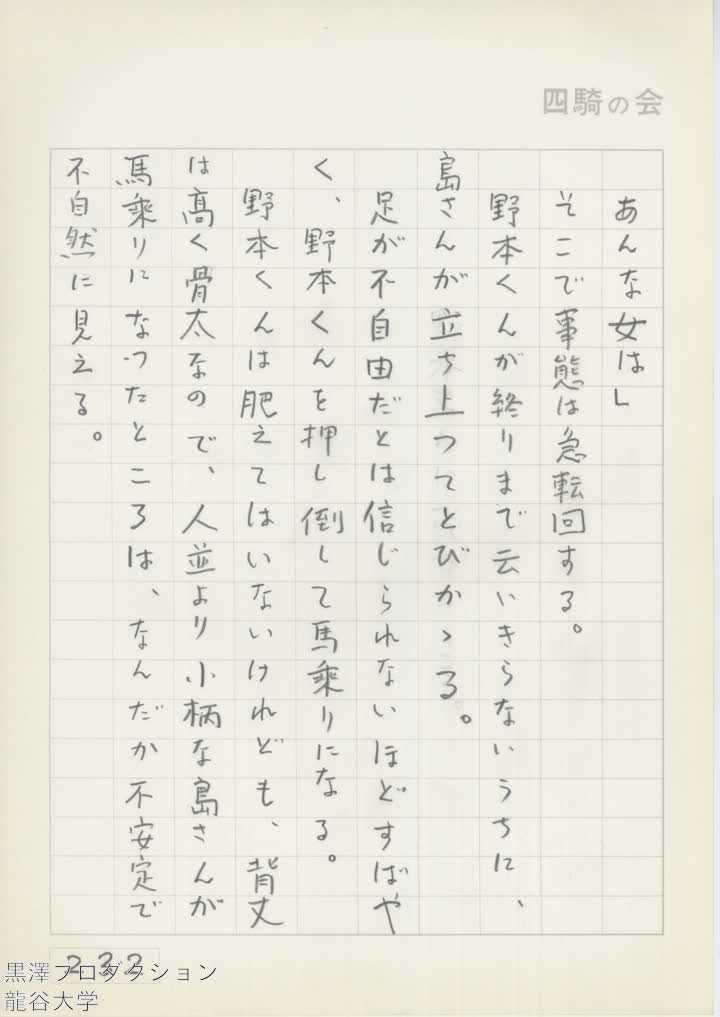 四騎の会
あんな女は」
そこで事態は急転回する。
野本くんが終りまで云いきらないうちに、
島さんが立ち上つてとびかゝる。
足が不自由だとは信じられないほどすばや
く、野本くんを押し倒して馬乗りになる。
野本くんは肥えてはいないけれども、背丈
は高く骨太なので、人並より小柄な島さんが
馬乗りになつたところは、なんだか不安定で
不自然に見える。
232
黒澤プロダクション
龍谷大学